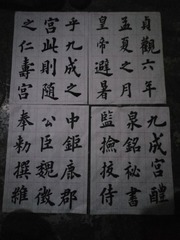 九成宫醴
泉銘秘書
監撿挍侍
中鉅鹿郡
公臣魏徵
奉勅撰維
貞觀六年
孟夏之月
皇帝避暑
乎九成之
宫此則隨
之仁壽宫